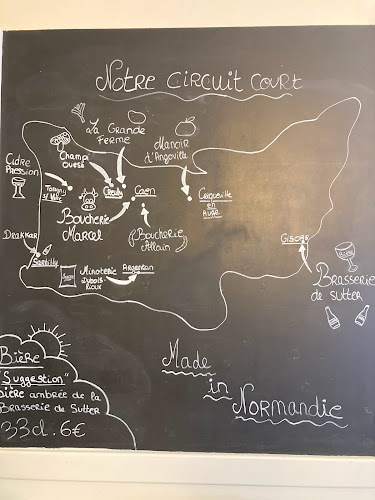 Notre circuit court
La Grande
Ferme
Manoir
d'Angoville
Champi
ouest
Cidre
Pression
Caen
Boucherie
Marcel
Boucherie
Allain
Drakkar
Sartilly
Minoterie
Argentan
Gisors
Bière
Brasserie
de Sutter
Made
in
Normandie
Bière
"Suggestion"
bière ambrée de la
Brasserie de Sutter
33cl. 6€